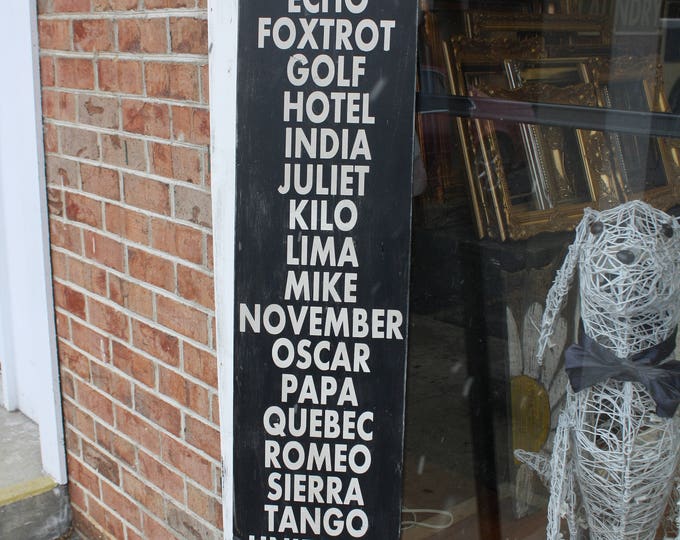 ECHO
FOXTROT
GOLF
HOTEL
INDIA
JULIET
KILO
LIMA
MIKE
NOVEMBER
OSCAR
PAPA
QUEBEC
ROMEO
SIERRA
TANGO